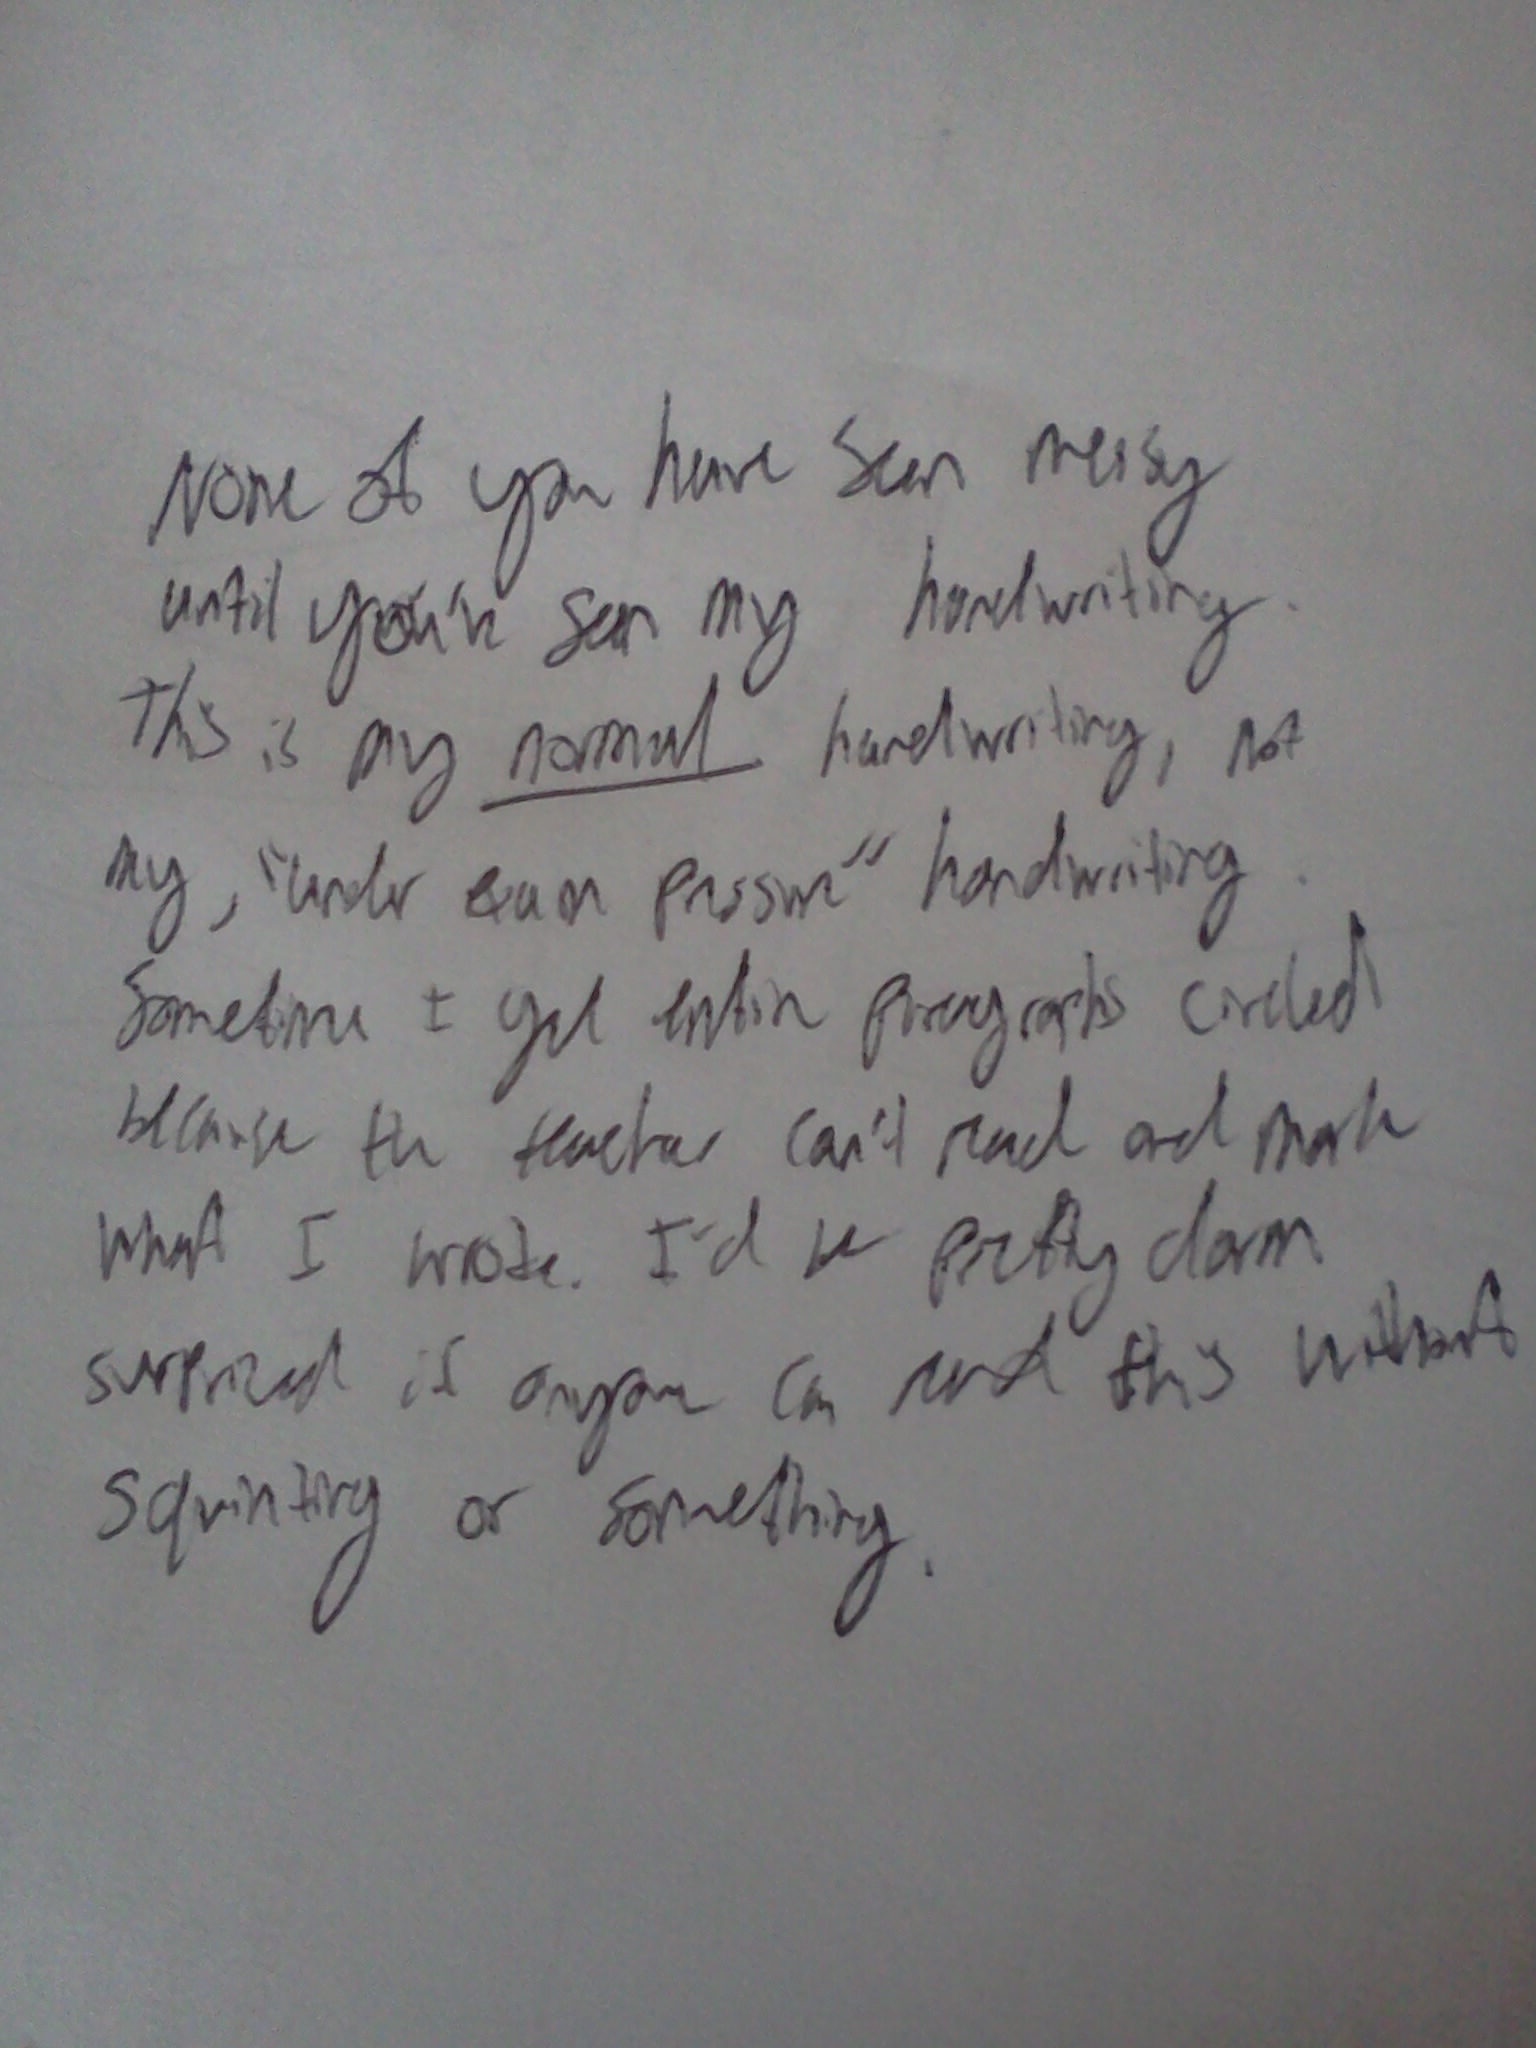 None of you have seen messy
until you've seen my handwriting.
This is my normal handwriting, not
my, "under exam pressure" handwriting.
Sometime I get entire paragraphs circled
because the teacher can't read and mark
what I wrote. I'd be pretty darn
surprized if anyone can read this without
squinting or something.